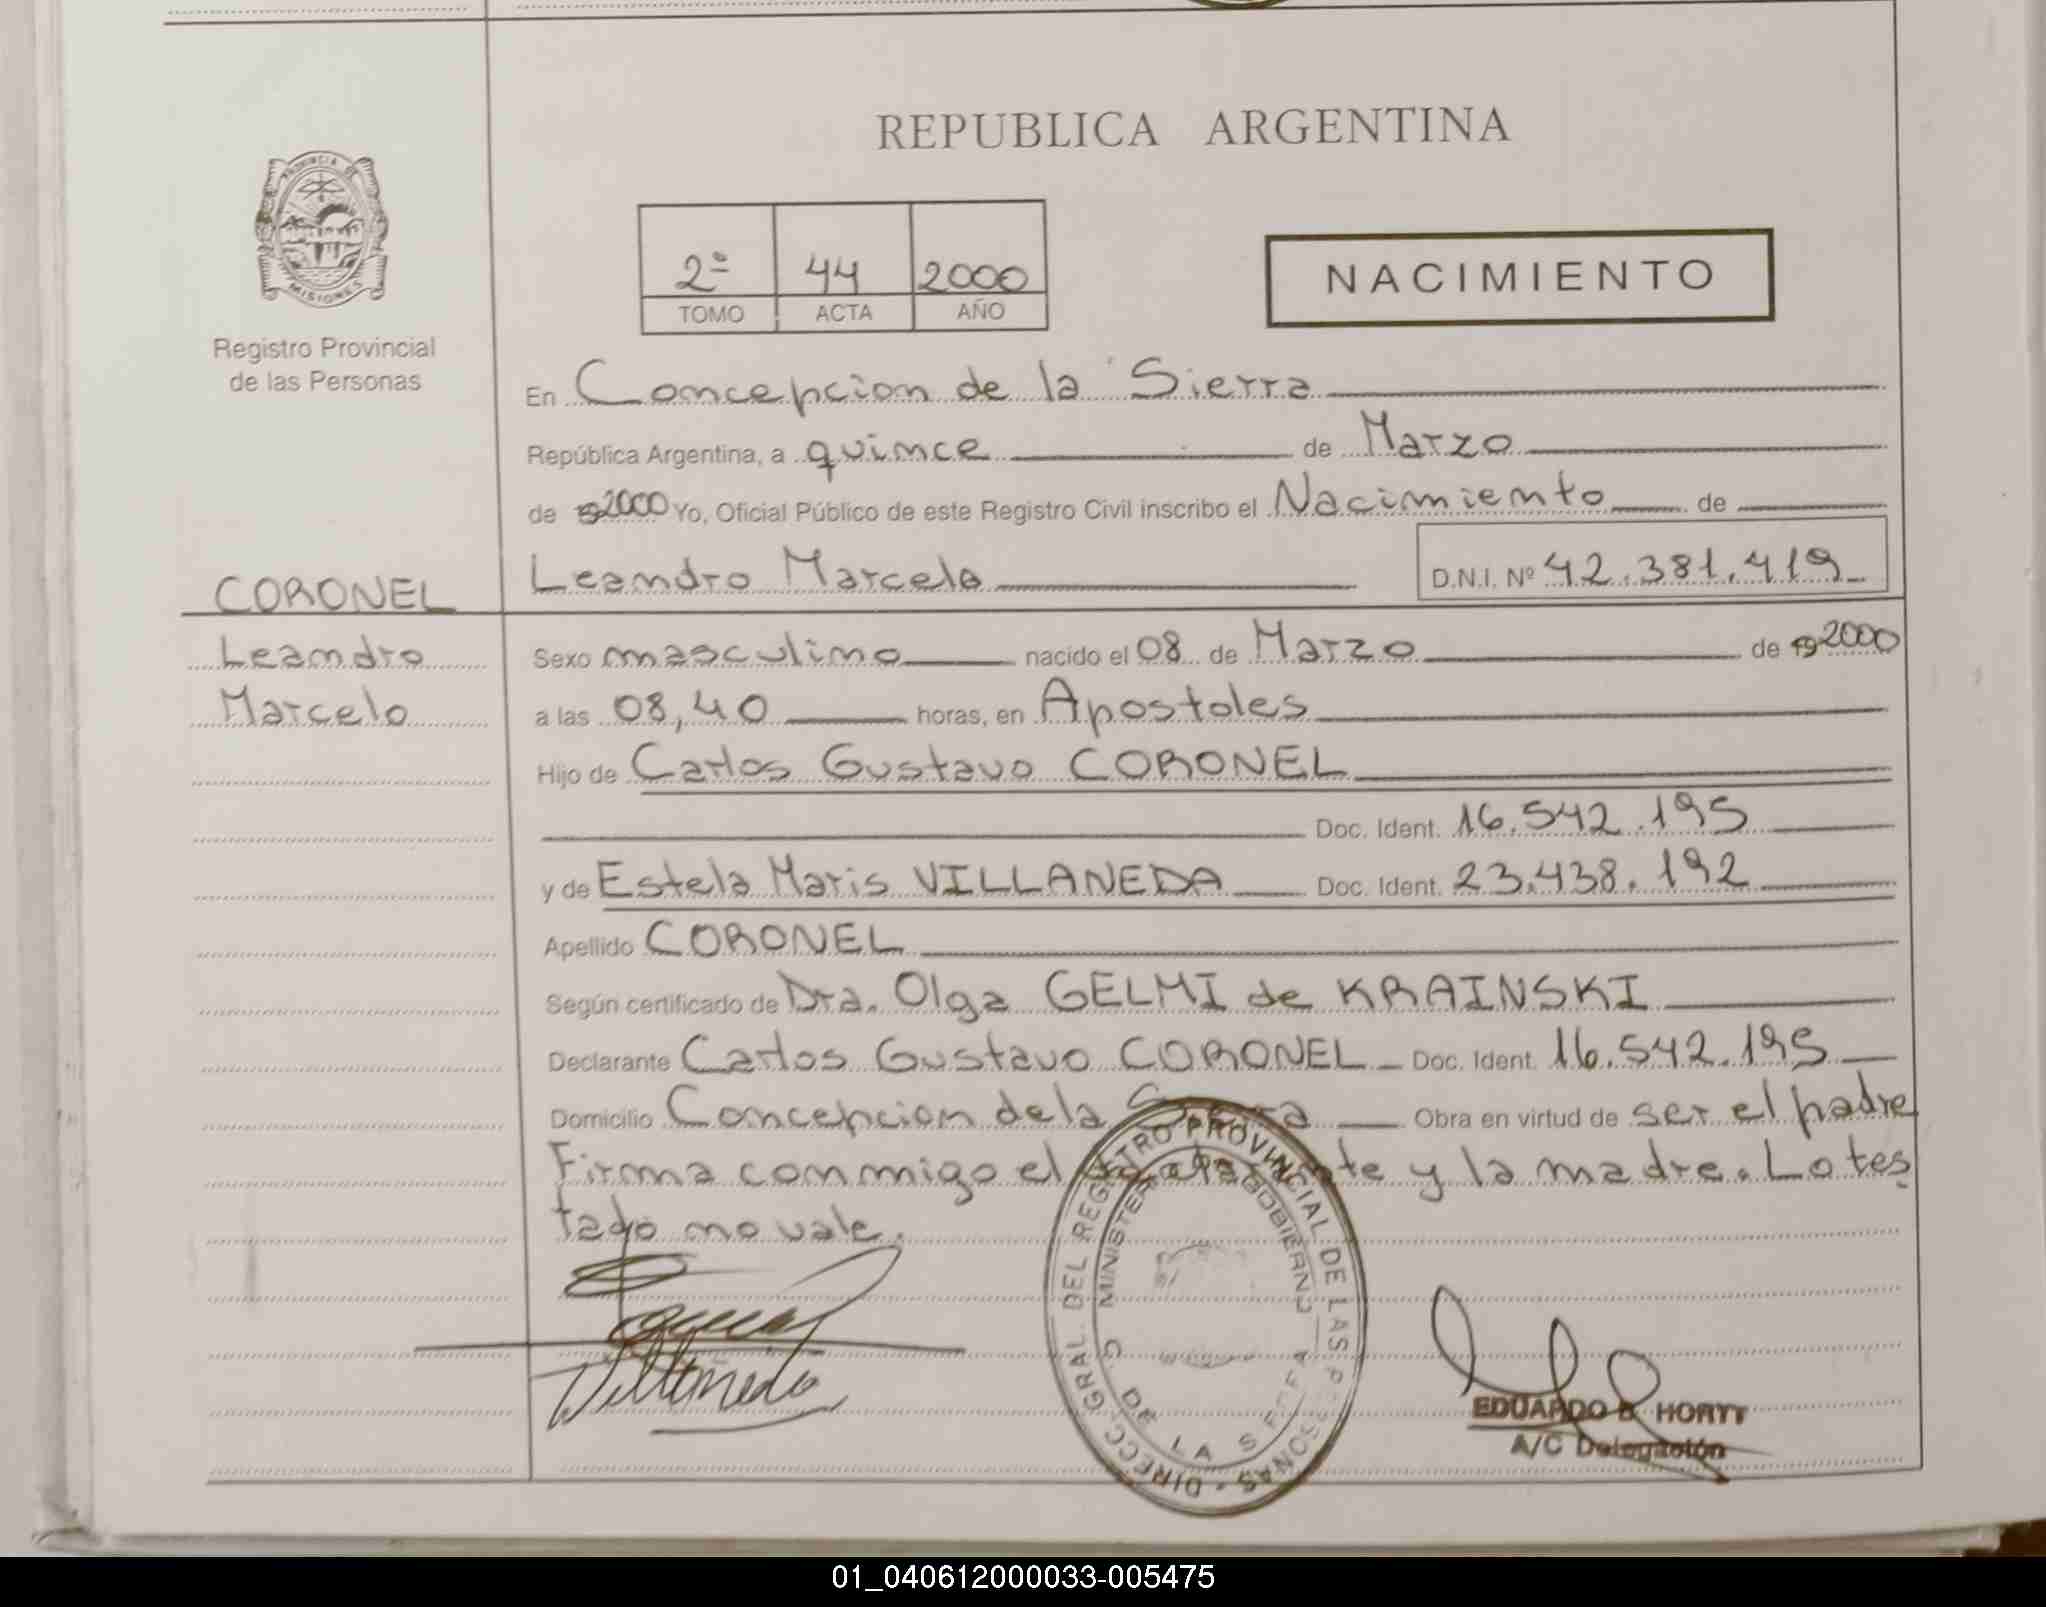 REPUBLICA ARGENTINA
PROVINCIA DE MISIONES
Registro Provincial
de las Personas
2º 44 2000
TOMO ACTA AÑO
NACIMIENTO
En Concepcion de la Sierra
República Argentina, a quince de Marzo
de 2000 Yo, Oficial Público de este Registro Civil inscribo el Nacimiento de
Leandro Marcelo D.N.I. Nº 42.381.419
CORONEL
Leandro
Marcelo
Sexo masculino nacido el 08 de Marzo de 2000
a las 08,40 horas, en Apostoles
Hijo de Carlos Gustavo CORONEL
Doc. Ident. 16.542.195
y de Estela Maris VILLANEDA Doc. Ident. 23.438.192
Apellido CORONEL
Según certificado de Dra. Olga GELMI de KRAINSKI
Declarante Carlos Gustavo CORONEL Doc. Ident. 16.542.195
Domicilio Concepcion de la Sierra Obra en virtud de ser el padre
Firma conmigo el declarante y la madre. Lo tes
tado no vale.
Villaneda
DIRECC. GRAL. DEL REGISTRO PROVINCIAL DE LAS PERSONAS
MINISTERIO DE GOBIERNO
C. DE LA SIERRA
EDUARDO HORTT
A/C Delegación
01_040612000033-005475